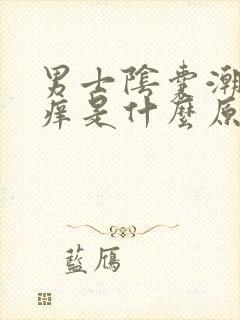 男士陰囊潮
痒是什麼原
藍鴈